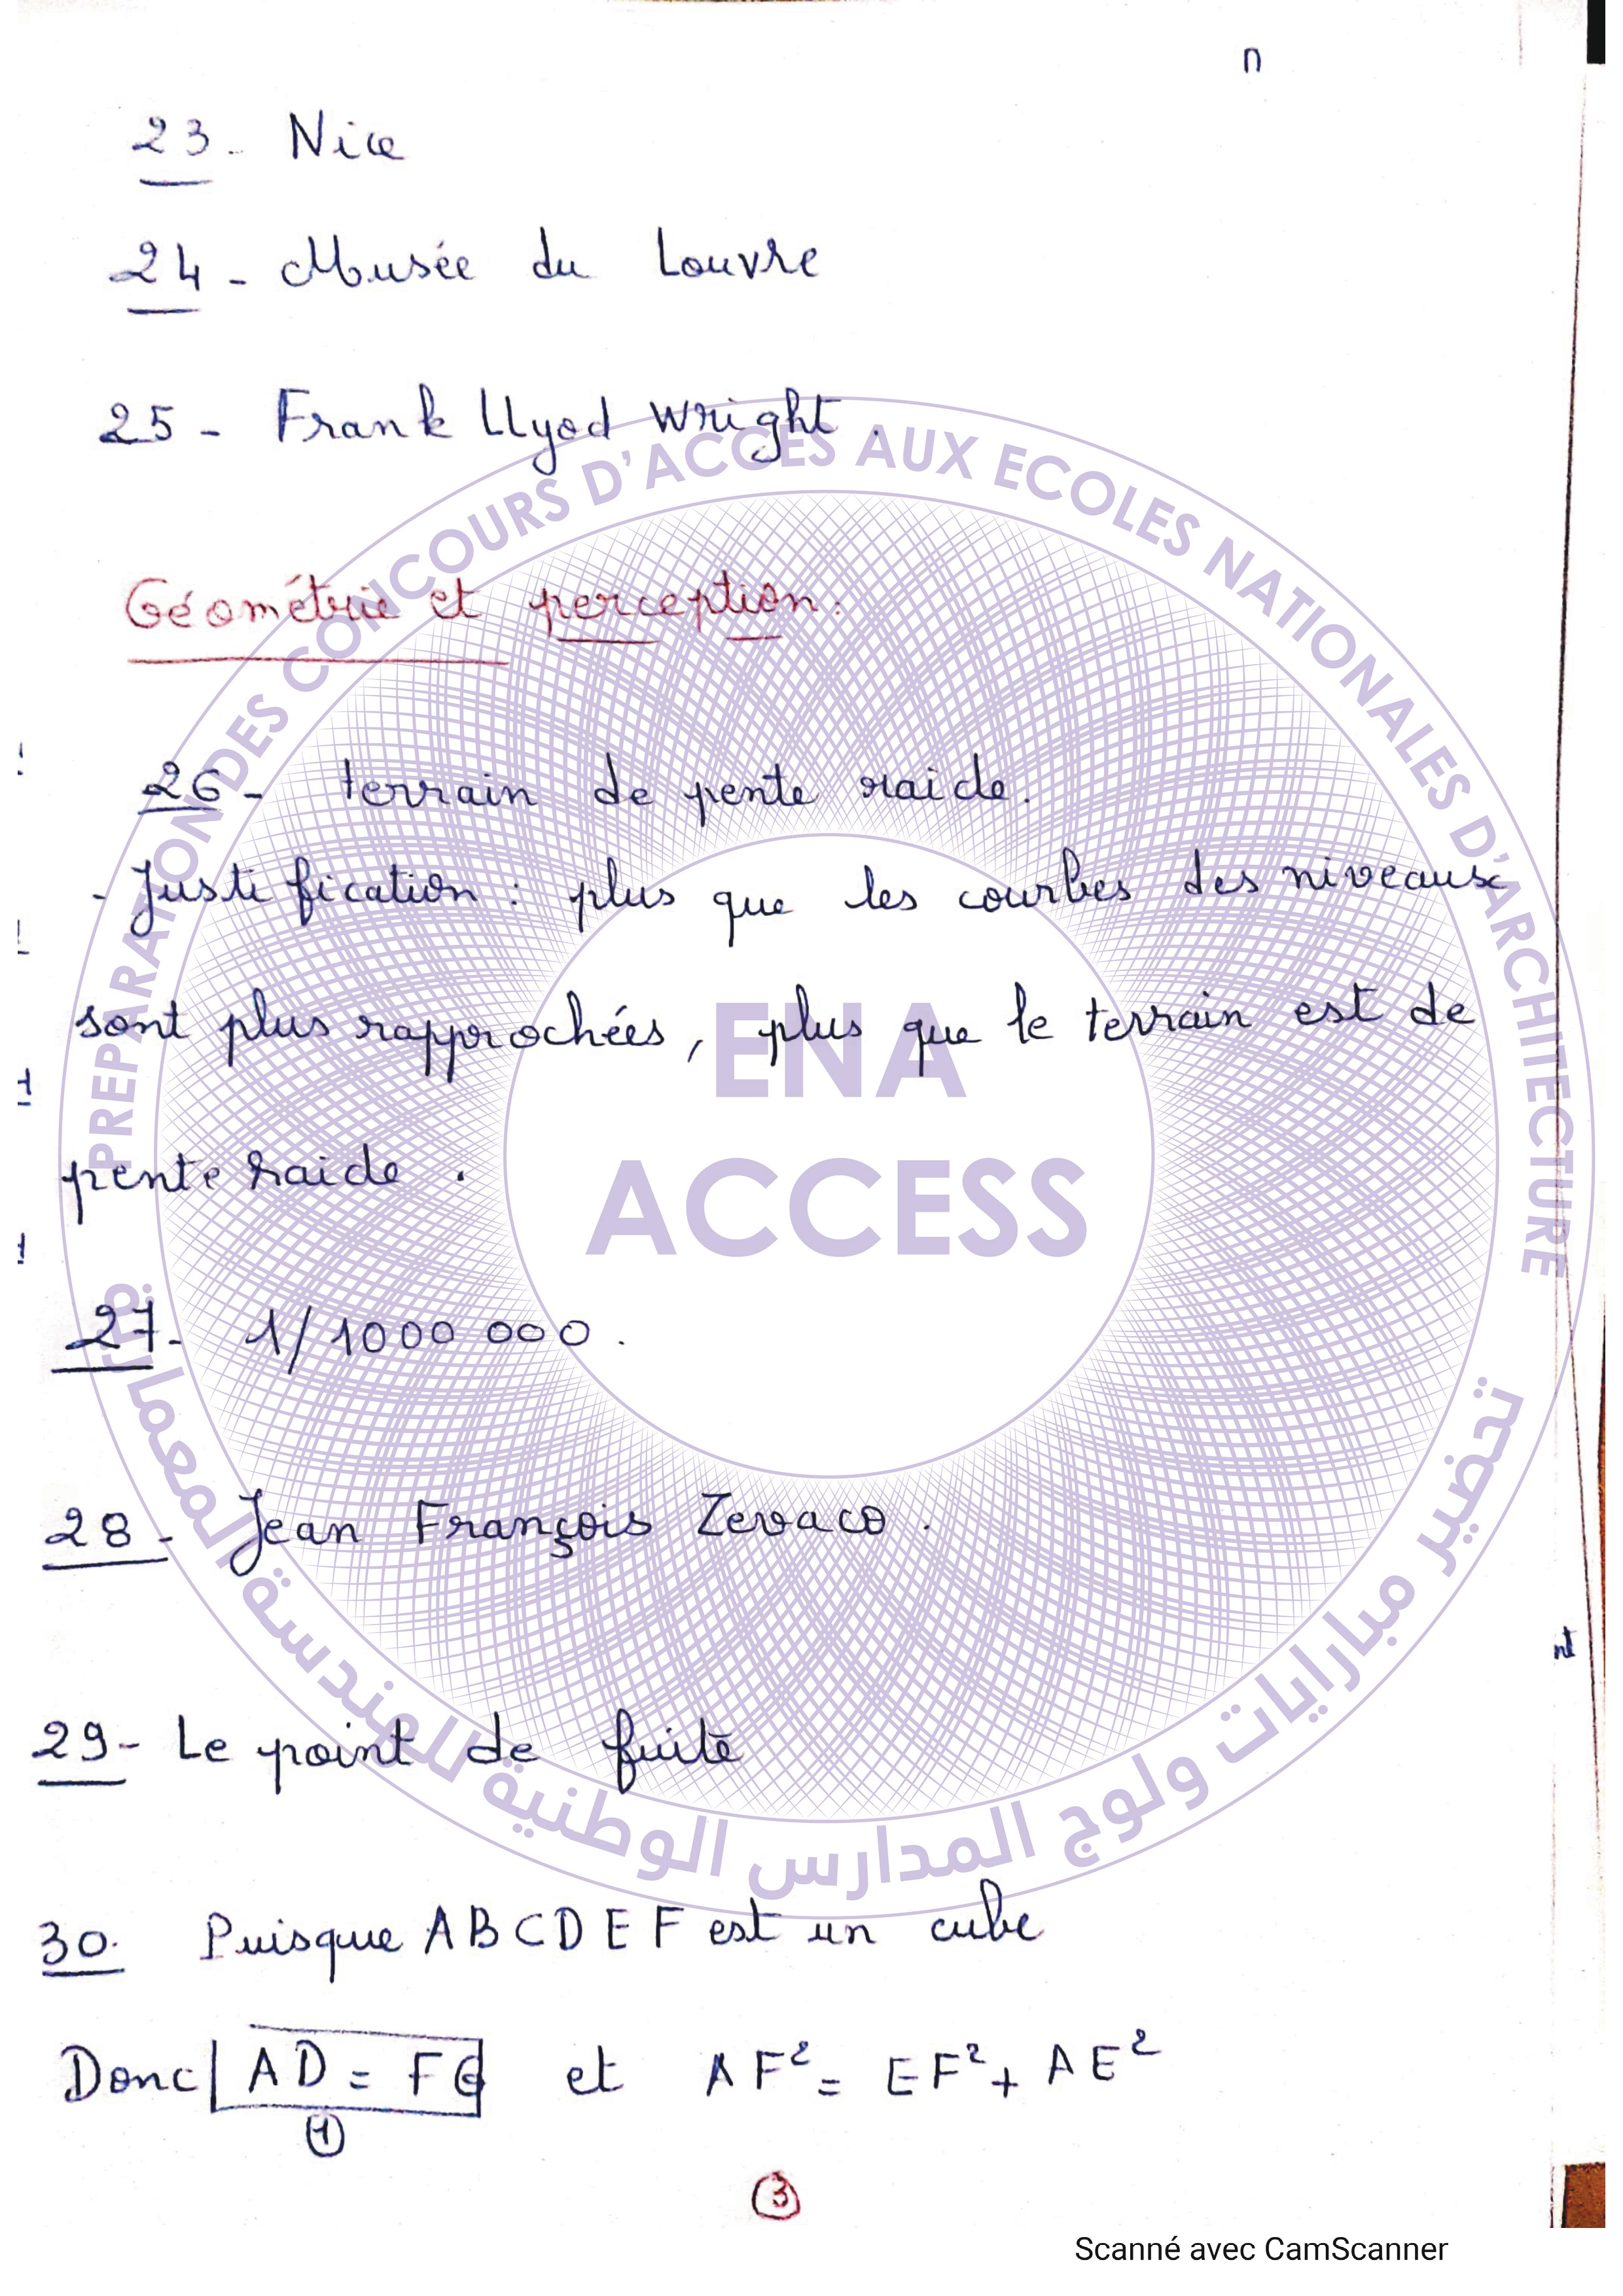 n
23- Nice
24- Musée du Louvre
25- Frank Llyod Wright.
Géométrie et perception:
26- terrain de pente raide.
- Justification : plus que les courbes des niveaux
sont plus rapprochées, plus que le terrain est de
pente raide.
27- 1/1000 000.
28- Jean François Zevaco.
29- Le point de fuite
30. Puisque ABCDEF est un cube
Donc AD = FG et AF² = EF² + AE²
①
③
PREPARATION DES CONCOURS D'ACCES AUX ECOLES NATIONALES D'ARCHITECTURE
ENA
ACCESS
تحضير مباريات ولوج المدارس الوطنية للهندسة المعمارية
nt
Scanné avec CamScanner